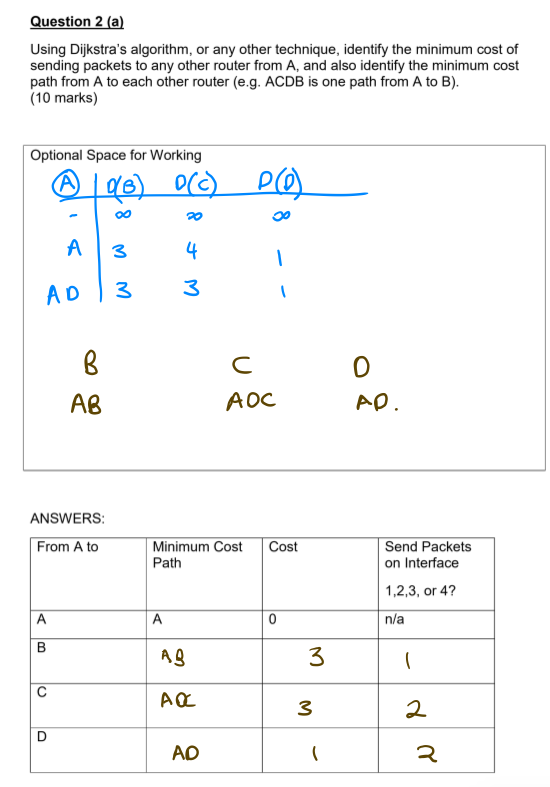 Question 2 (a)
Using Dijkstra's algorithm, or any other technique, identify the minimum cost of
sending packets to any other router from A, and also identify the minimum cost
path from A to each other router (e.g. ACDB is one path from A to B).
(10 marks)
Optional Space for Working
A D(B) D(C) D(D)
- ∞ ∞ ∞
A 3 4 1
AD 3 3 1
B C D
AB ADC AD.
ANSWERS:
From A to Minimum Cost Path Cost Send Packets on Interface 1,2,3, or 4?
A A 0 n/a
B AB 3 1
C ADC 3 2
D AD 1 2